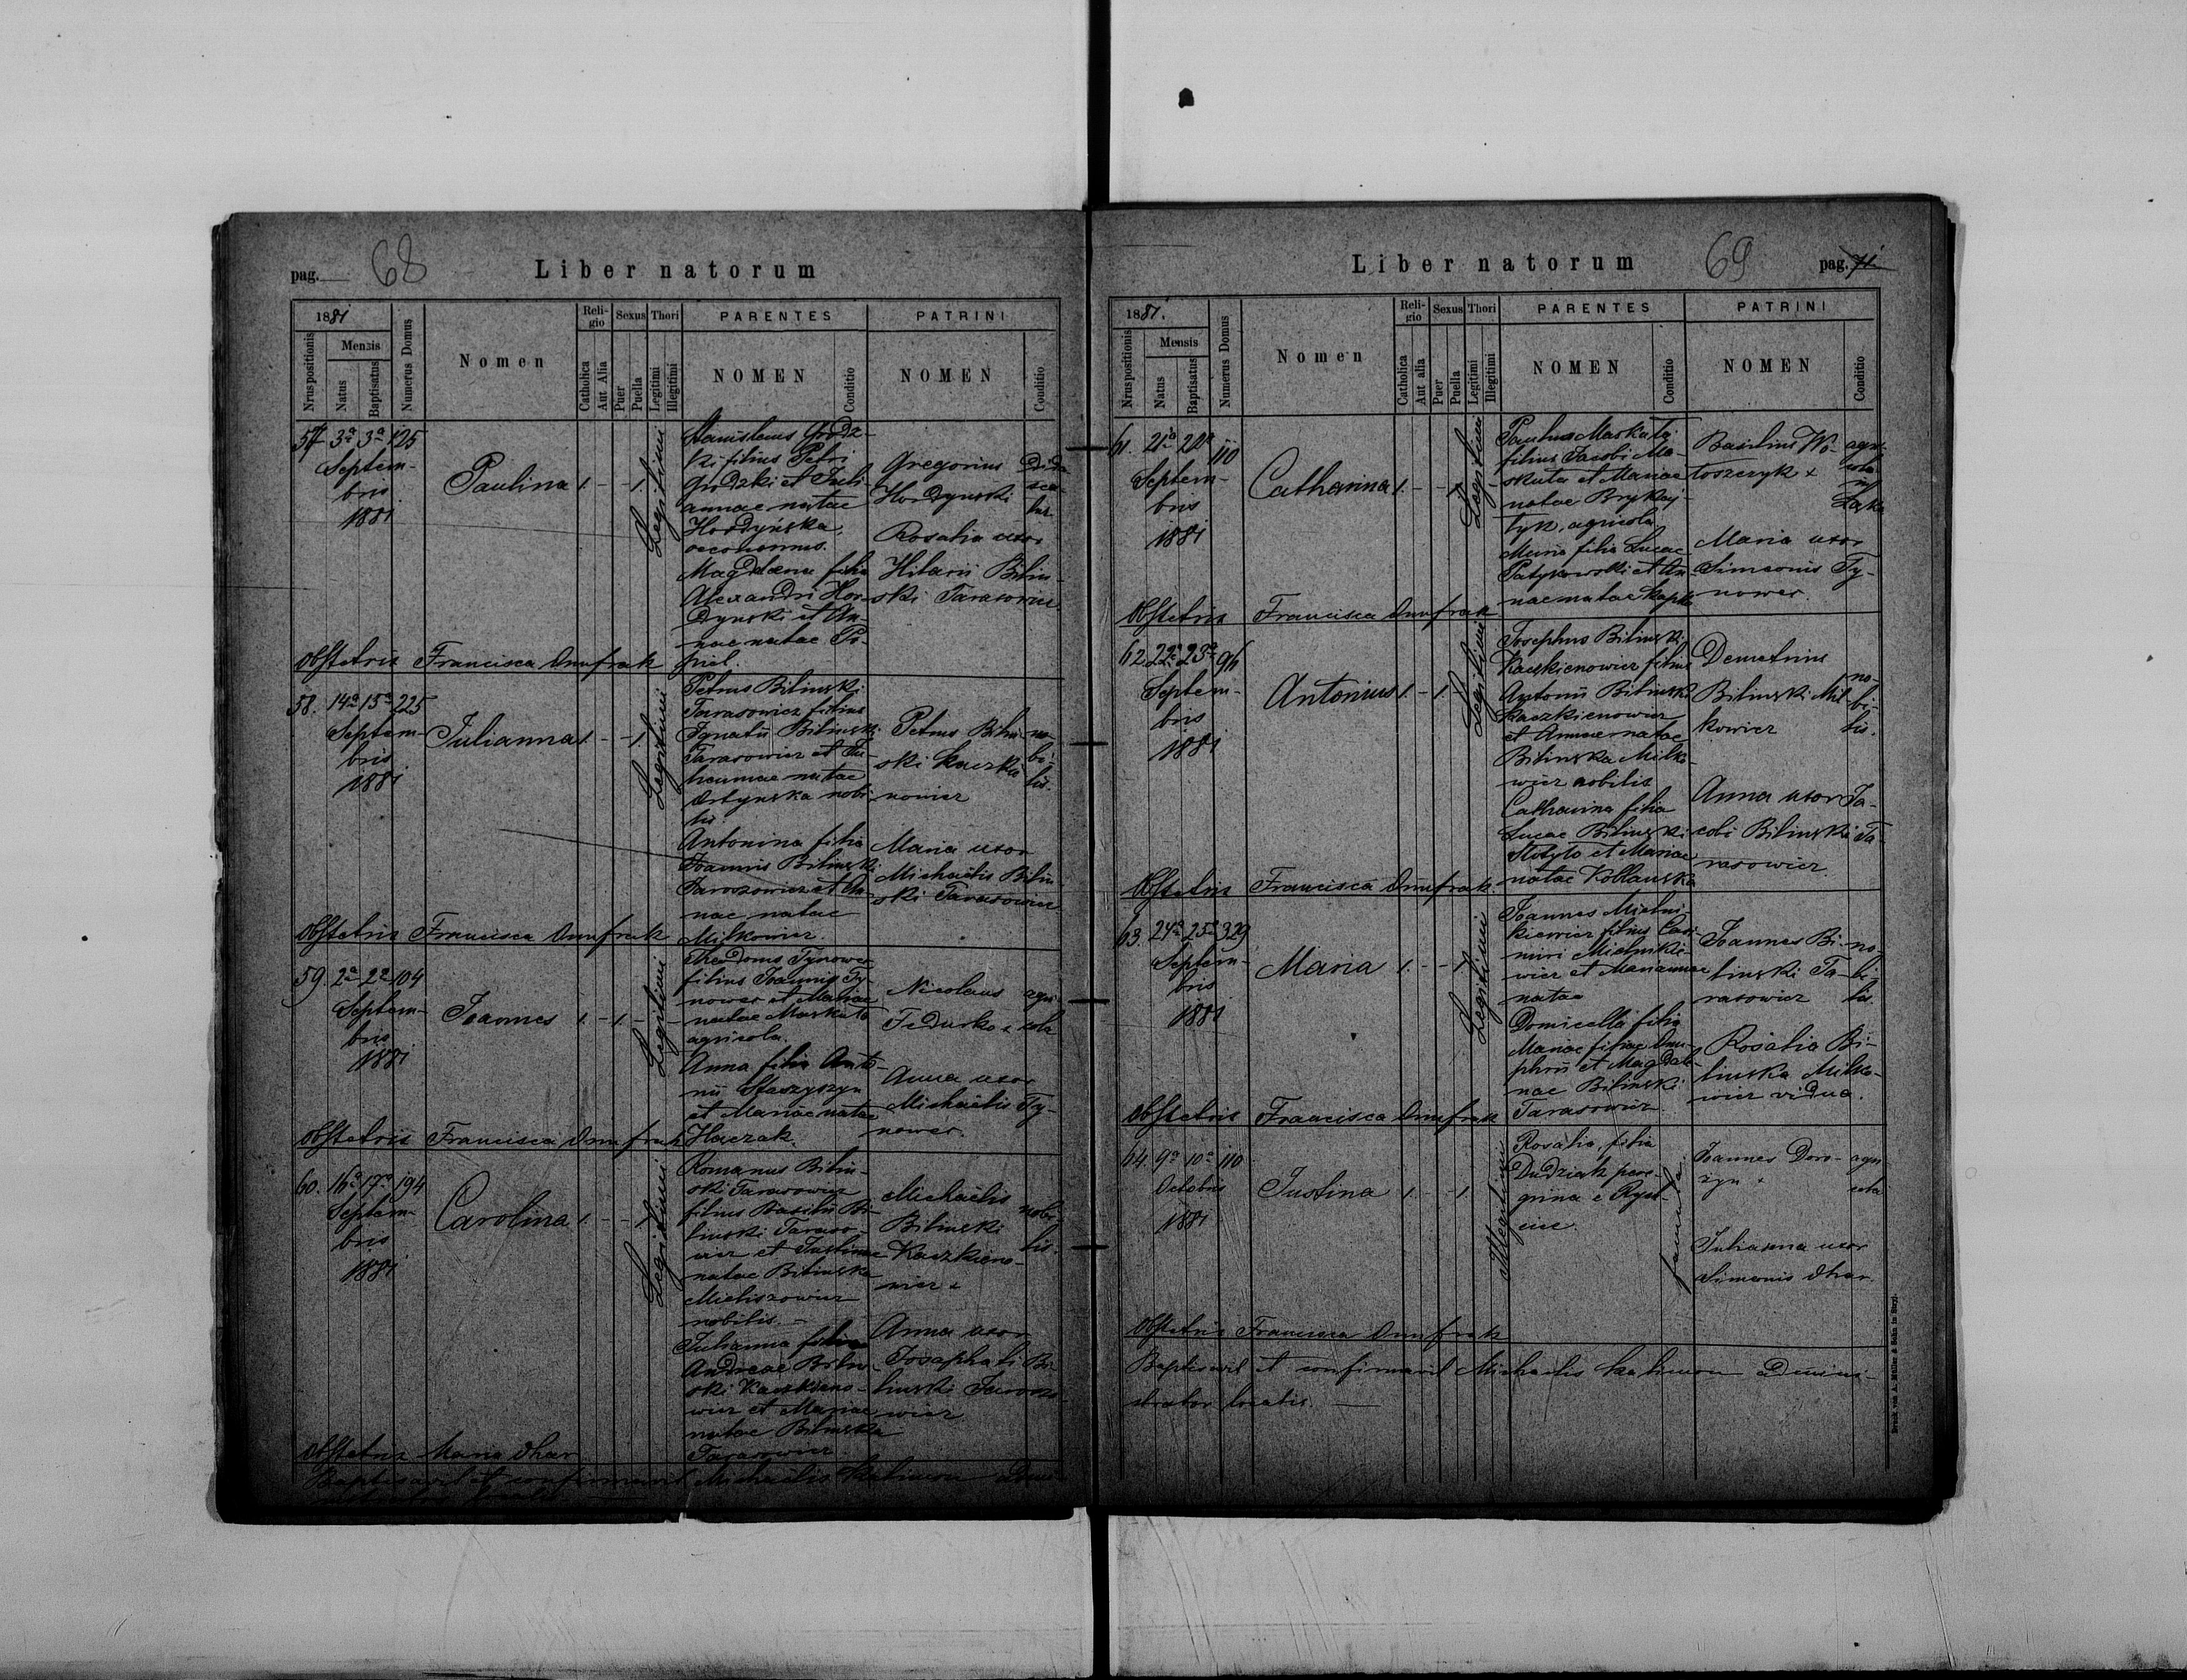 pag. 68
Liber natorum
1881
Mensis
Nrus positionis
Natus
Baptisatus
Numerus Domus
Nomen
Religio
Catholica
Aut Alia
Sexus
Puer
Puella
Thori
Legitimi
Illegitimi
PARENTES
NOMEN
Conditio
PATRINI
NOMEN
Conditio
57 3a 3a 125
Septem-
bris
1881
Paulina 1. - - 1.
Legitimi
Stanislaus Grodz-
ki filius Petri
Grodzki et Juli-
annae natae
Hordyńska,
oeconomus.
Magdalena filia
Alexandri Hor-
dynski et An-
nae natae Po-
piel.
Gregorius
Hordynski
Rosalia uxor
Hilarii Bilin-
ski Tarasowicz
Obstetrix Francisca Onufrak
58. 14a 15a 225
Septem-
bris
1881
Julianna 1. - - 1.
Legitimi
Petrus Bilinski
Tarasowicz filius
Ignatii Bilinski
Tarasowicz et Ju-
liannae natae
Ortynska nobi-
lis.
Antonina filia
Joannis Bilinski
Tarasowicz et An-
nae natae
Milkowicz.
Petrus Bilin-
ski Kaczkie-
nowicz
no-
bi-
lis.
Maria uxor
Michaëlis Bilin-
ski Tarasowicz
Obstetrix Francisca Onufrak
59. 2a 2a 104
Septem-
bris
1881
Joannes 1. - 1. -
Legitimi
Theodorus Tynower
filius Joannis Ty-
nower et Mariae
natae Maskuta
agricola.
Anna filia Anto-
nii Staszyszyn
et Mariae natae
Haczak.
Nicolaus
Fedurko
agri-
cola
Anna uxor
Michaëlis Ty-
nower.
Obstetrix Francisca Onufrak
60. 16a 17a 194
Septem-
bris
1881
Carolina 1. - - 1.
Legitimi
Romanus Bilin-
ski Tarasowicz
filius Basilii Bi-
linski Taraso-
wicz et Justinae
natae Bilinska
Mieliszowicz
nobilis. -
Julianna filia
Andreae Bilin-
ski Kaczkieno-
wicz et Mariae
natae Bilinska
Tarasowicz.
Michaëlis
Bilinski
Kaczkieno-
wicz
nobi-
lis.
Anna uxor
Josaphati Bi-
linski Taraso-
wicz
Obstetrix Maria
Baptisavit et confirmavit Michaëlis
Liber natorum
69
pag. 71
1881.
Mensis
Nrus positionis
Natus
Baptisatus
Numerus Domus
Nomen
Religio
Catholica
Aut alia
Sexus
Puer
Puella
Thori
Legitimi
Illegitimi
PARENTES
NOMEN
Conditio
PATRINI
NOMEN
Conditio
61. 21a 22a 110
Septem-
bris
1881
Catharina 1. - - 1.
Legitimi
Paulus Maskuta
filius Jacobi Ma-
skuta et Mariae
natae Brykaj-
tyk, agricola
Maria filia Lucae
Patykowski et An-
nae natae
Basilius Wo-
toszczyk
Maria uxor
Simeonis Ty-
nower.
Obstetrix Francisca Onufrak
62. 22a 23a 96
Septem-
bris
1881
Antonius 1. - 1. -
Legitimi
Josephus Bilinski
Kaczkienowicz filius
Antonii Bilinski
Kaczkienowicz
et Annae natae
Bilinska Milko-
wicz nobilis
Catharina filia
Lucae Bilinski
et Mariae
natae Koblanska
Demetrius
Bilinski Mil-
kowicz
no-
bi-
lis.
Anna uxor Ja-
cobi Bilinski Ta-
rasowicz
Obstetrix Francisca Onufrak.
63. 24a 25a 329
Septem-
bris
1881
Maria 1. - - 1.
Legitimi
Joannes Mielni-
kiewicz filius Casi-
miri Mielnikie-
wicz et Mariannae
natae
Domicella filia
Mariae filiae Onu-
phrii et Magdale-
nae Bilinski
Tarasowicz.
Joannes Bi-
linski Ta-
rasowicz
no-
bi-
lis.
Rosalia Bi-
linska Milko-
wicz vidua.
Obstetrix Francisca Onufrak
64. 9a 10a 110
Octobris
1881
Justina 1. - - 1.
Illegitimi
Rosalia, filia
Dudziak pere-
grina e
famula.
Joannes Doro-
zyn
agri-
cola
Julianna uxor
Simeonis
Obstetrix Francisca Onufrak
Baptisavit et confirmavit Michaëlis Admini-
strator localis. -
Druck von A. Müller & Sohn in Stryj.